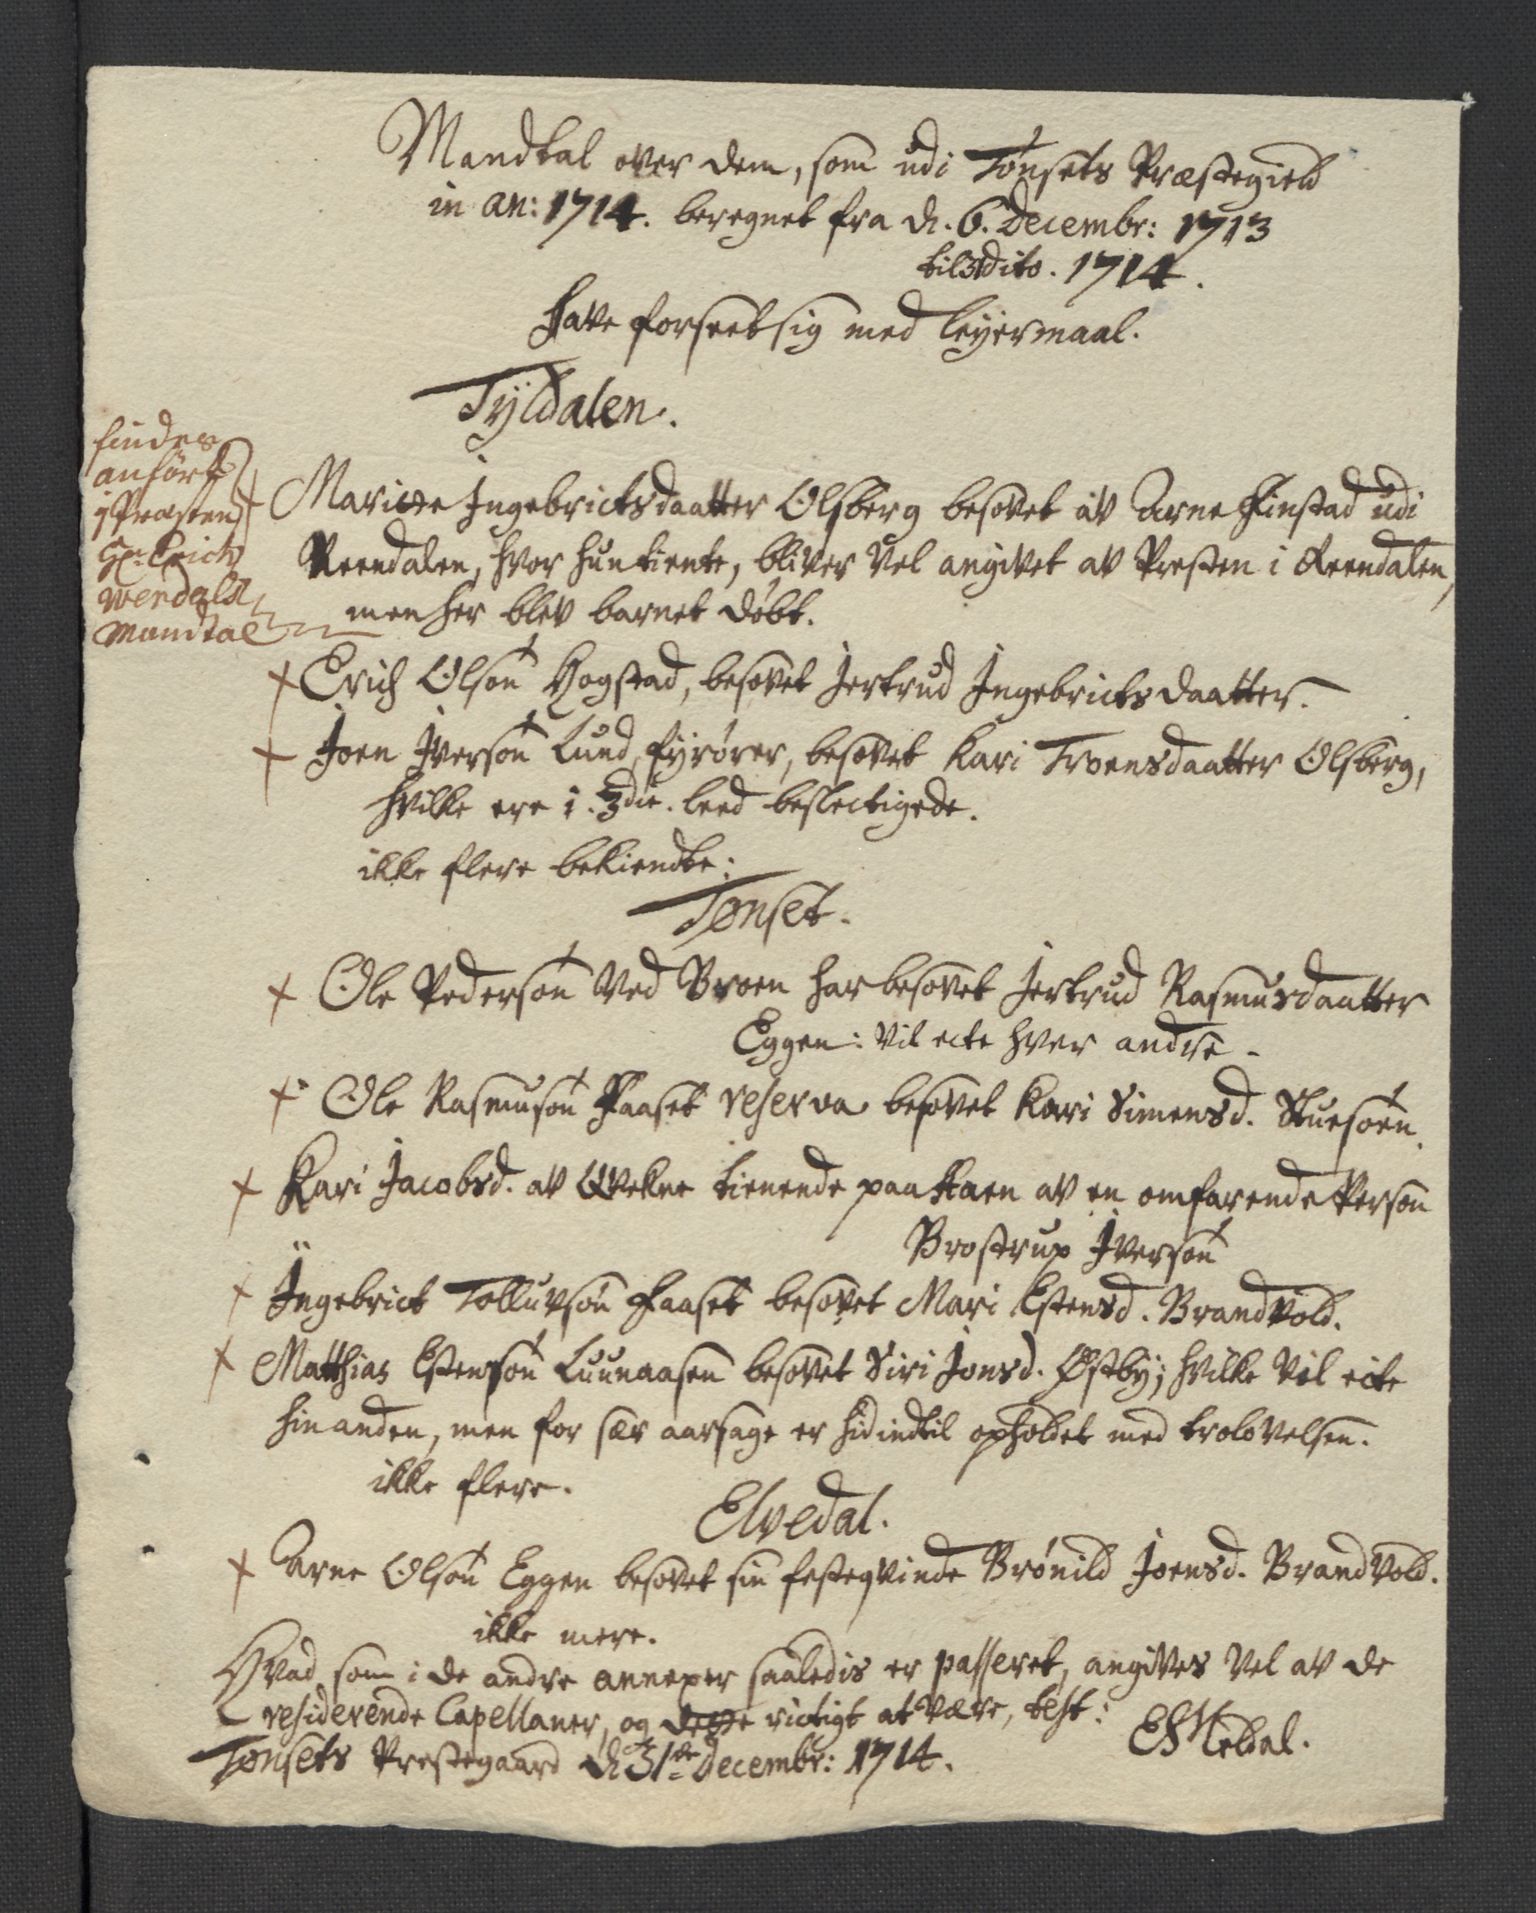 Mandtal over dem, som udi Tønsets Præstegield
in an: 1714. beregnet fra d. 6. Decembr: 1713
til dito. 1714.
have forseet sig med leyermaal.
Tyldalen.
findes
anført
i Præsten
Hr. Erich
Mandtal
Ingebrictsdaatter Olsberg besovet av Arne Finstad udi
Reendalen, hvor hun tiente, bliver vel angivet av Presten i Reendalen,
men her blev barnet døbt.
+ Erich Olsøn Hogstad, besovet Jertrud Ingebrictsdaatter.
+ Joen Iversøn Lund, fyrører, besovet Kari Troensdaatter Olsberg,
hvilke ere i 3die. leed beslectigede.
ikke flere bekiendte:
Tønset.
+ Ole Pedersøn ved Broen har besovet Jertrud Rasmusdaatter
Eggen: vil ecte hver andre.
+ Ole Rasmusøn Faaset reserva besovet Kari Simensd. Stuesøen.
+ Kari Jacobsd. av Qvekne tienende paa av en omfarende Person
Brostrup Iversøn
+ Ingebrict Tolluvsøn Faaset besovet Mari Estensd. Brandvold.
+ Matthias Estensøn Luunaasen besovet Siri Jonsd. Østby; hvilke vil ecte
hinanden, men for sær aarsage er hid indtil opholdet med trolovelsen.
ikke flere.
Elvedal.
+ Arne Olsøn Eggen besovet sin festeqvinde Brønild Joensd. Brandvold.
ikke mere.
Hvad som i de andre annexer saaledis er passeret, angives vel av de
residerende Capellaner, og dette rictigt at være, test:
Tønsets Prestegaard d. 31de Decembr: 1714.